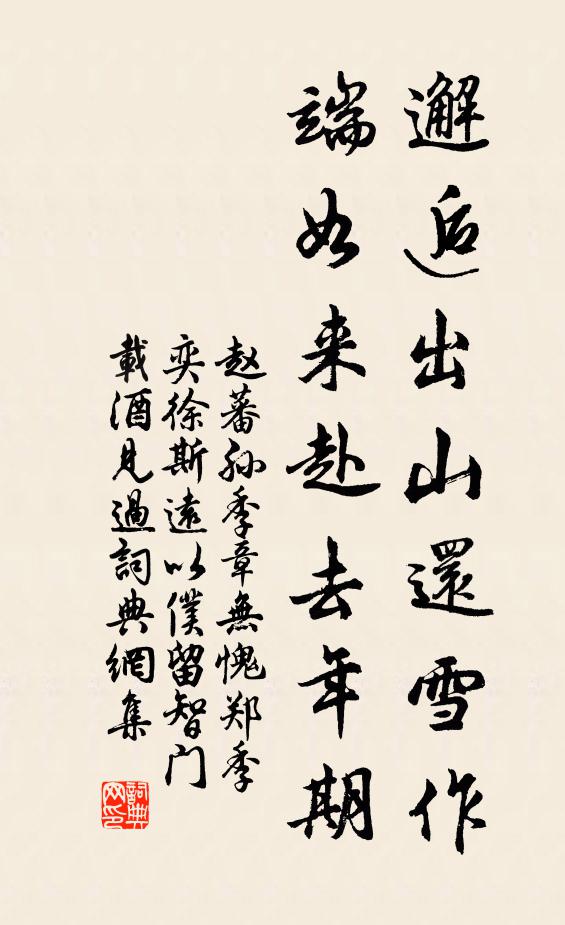 邂逅出山還雪作
端如来赴去年期
赵蕃孙季章無愧郑季
奕徐斯遠以僕留智门
載酒見過詞典網集
詞典
网印